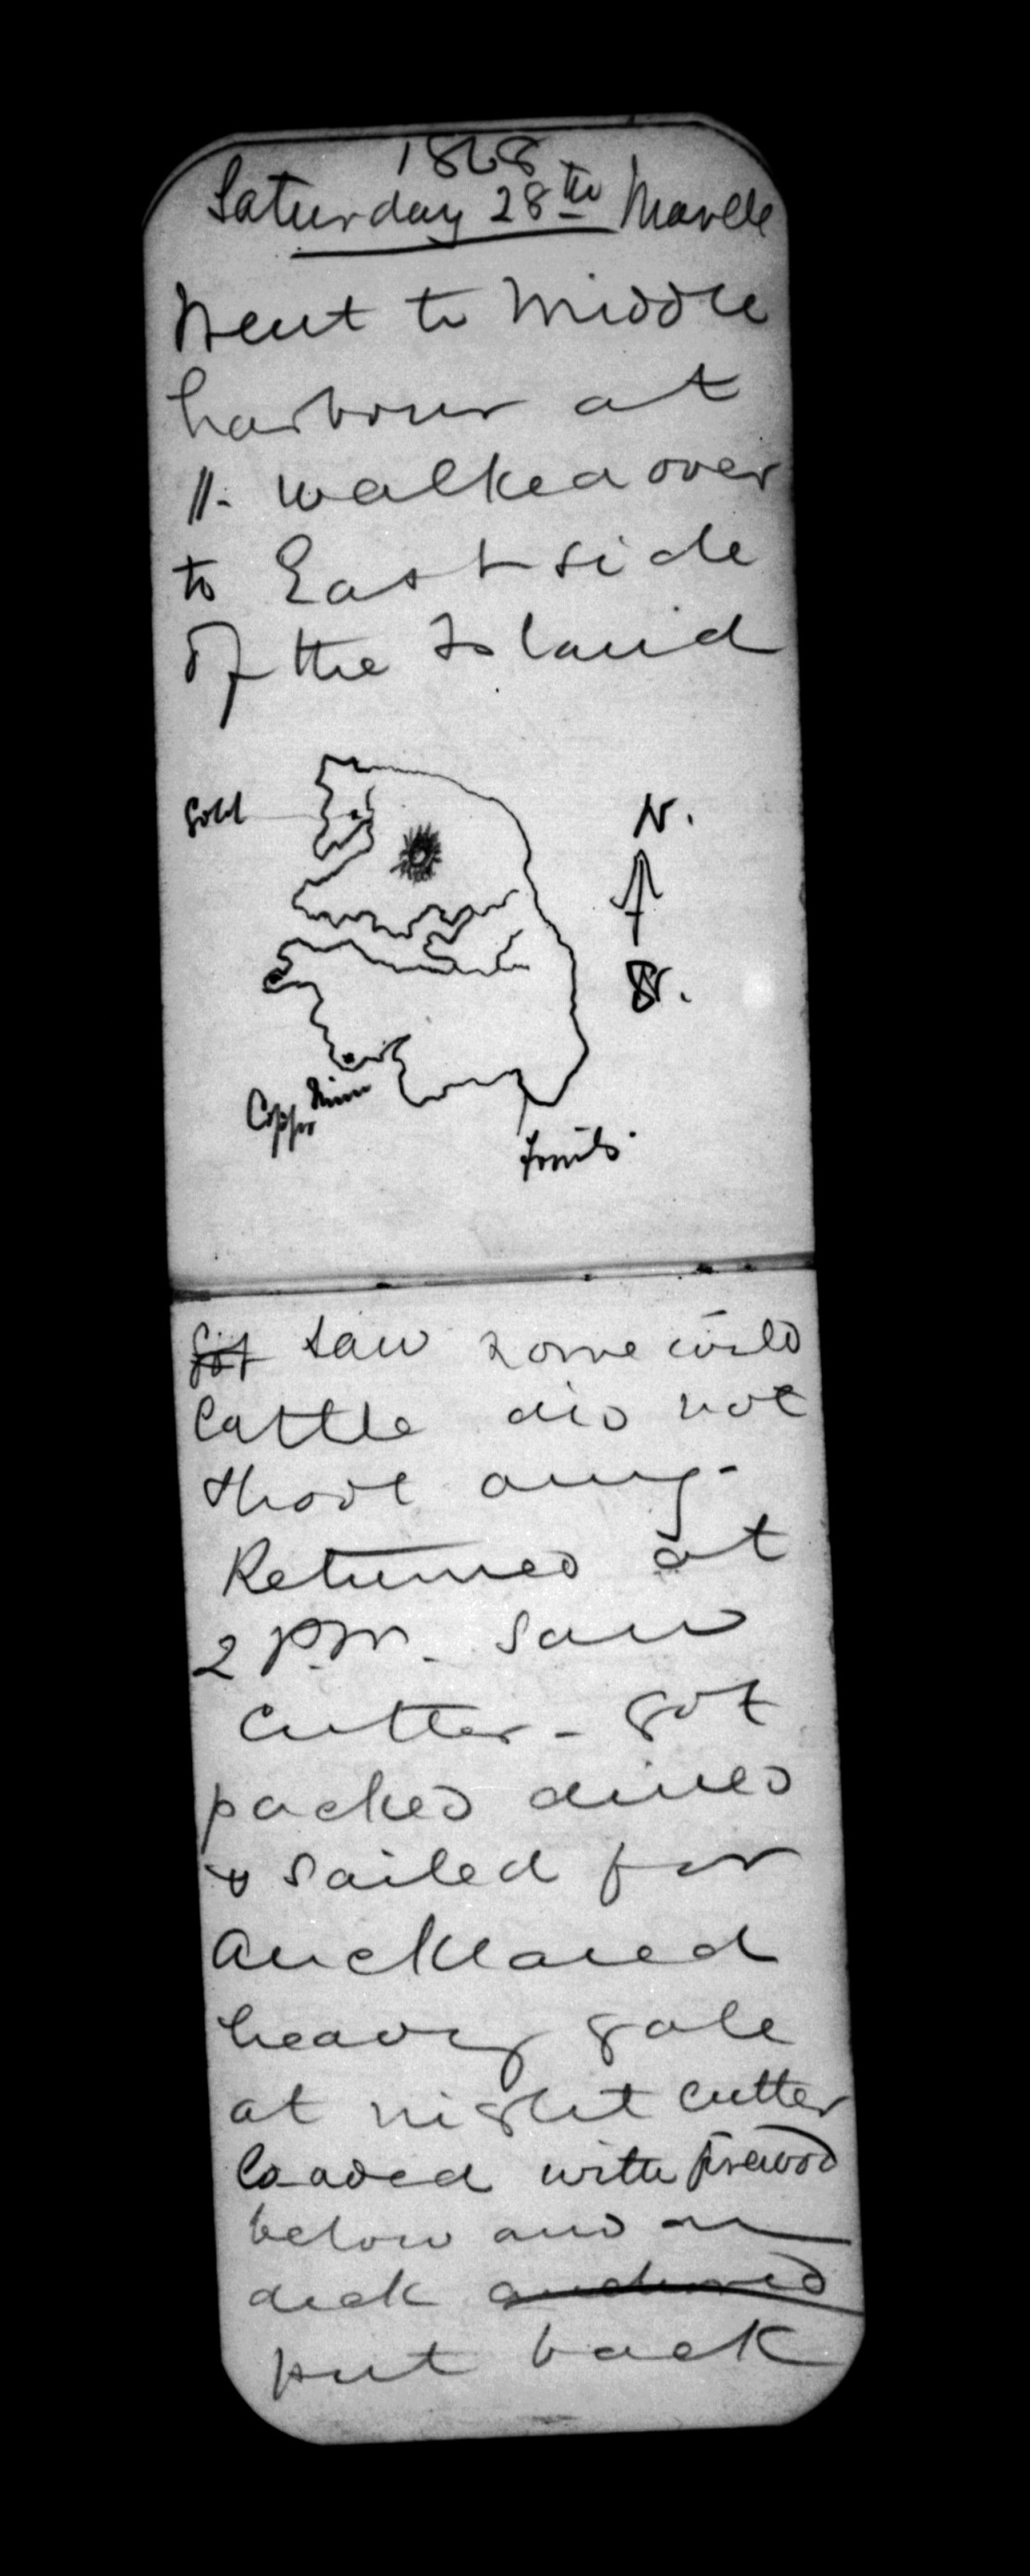 1868
Saturday 28th March
Went to Middle
harbour at
11. walked over
to East side
of the Island
Gold
N.
S.
Copper Mine
Fossils.
Got saw some wild
Cattle did not
shoot any -
Returned at
2 P.M. saw
Cutter - got
packed dined
& sailed for
Auckland
heavy gale
at night cutter
loaded with firewood
below and on
deck anchored
put back